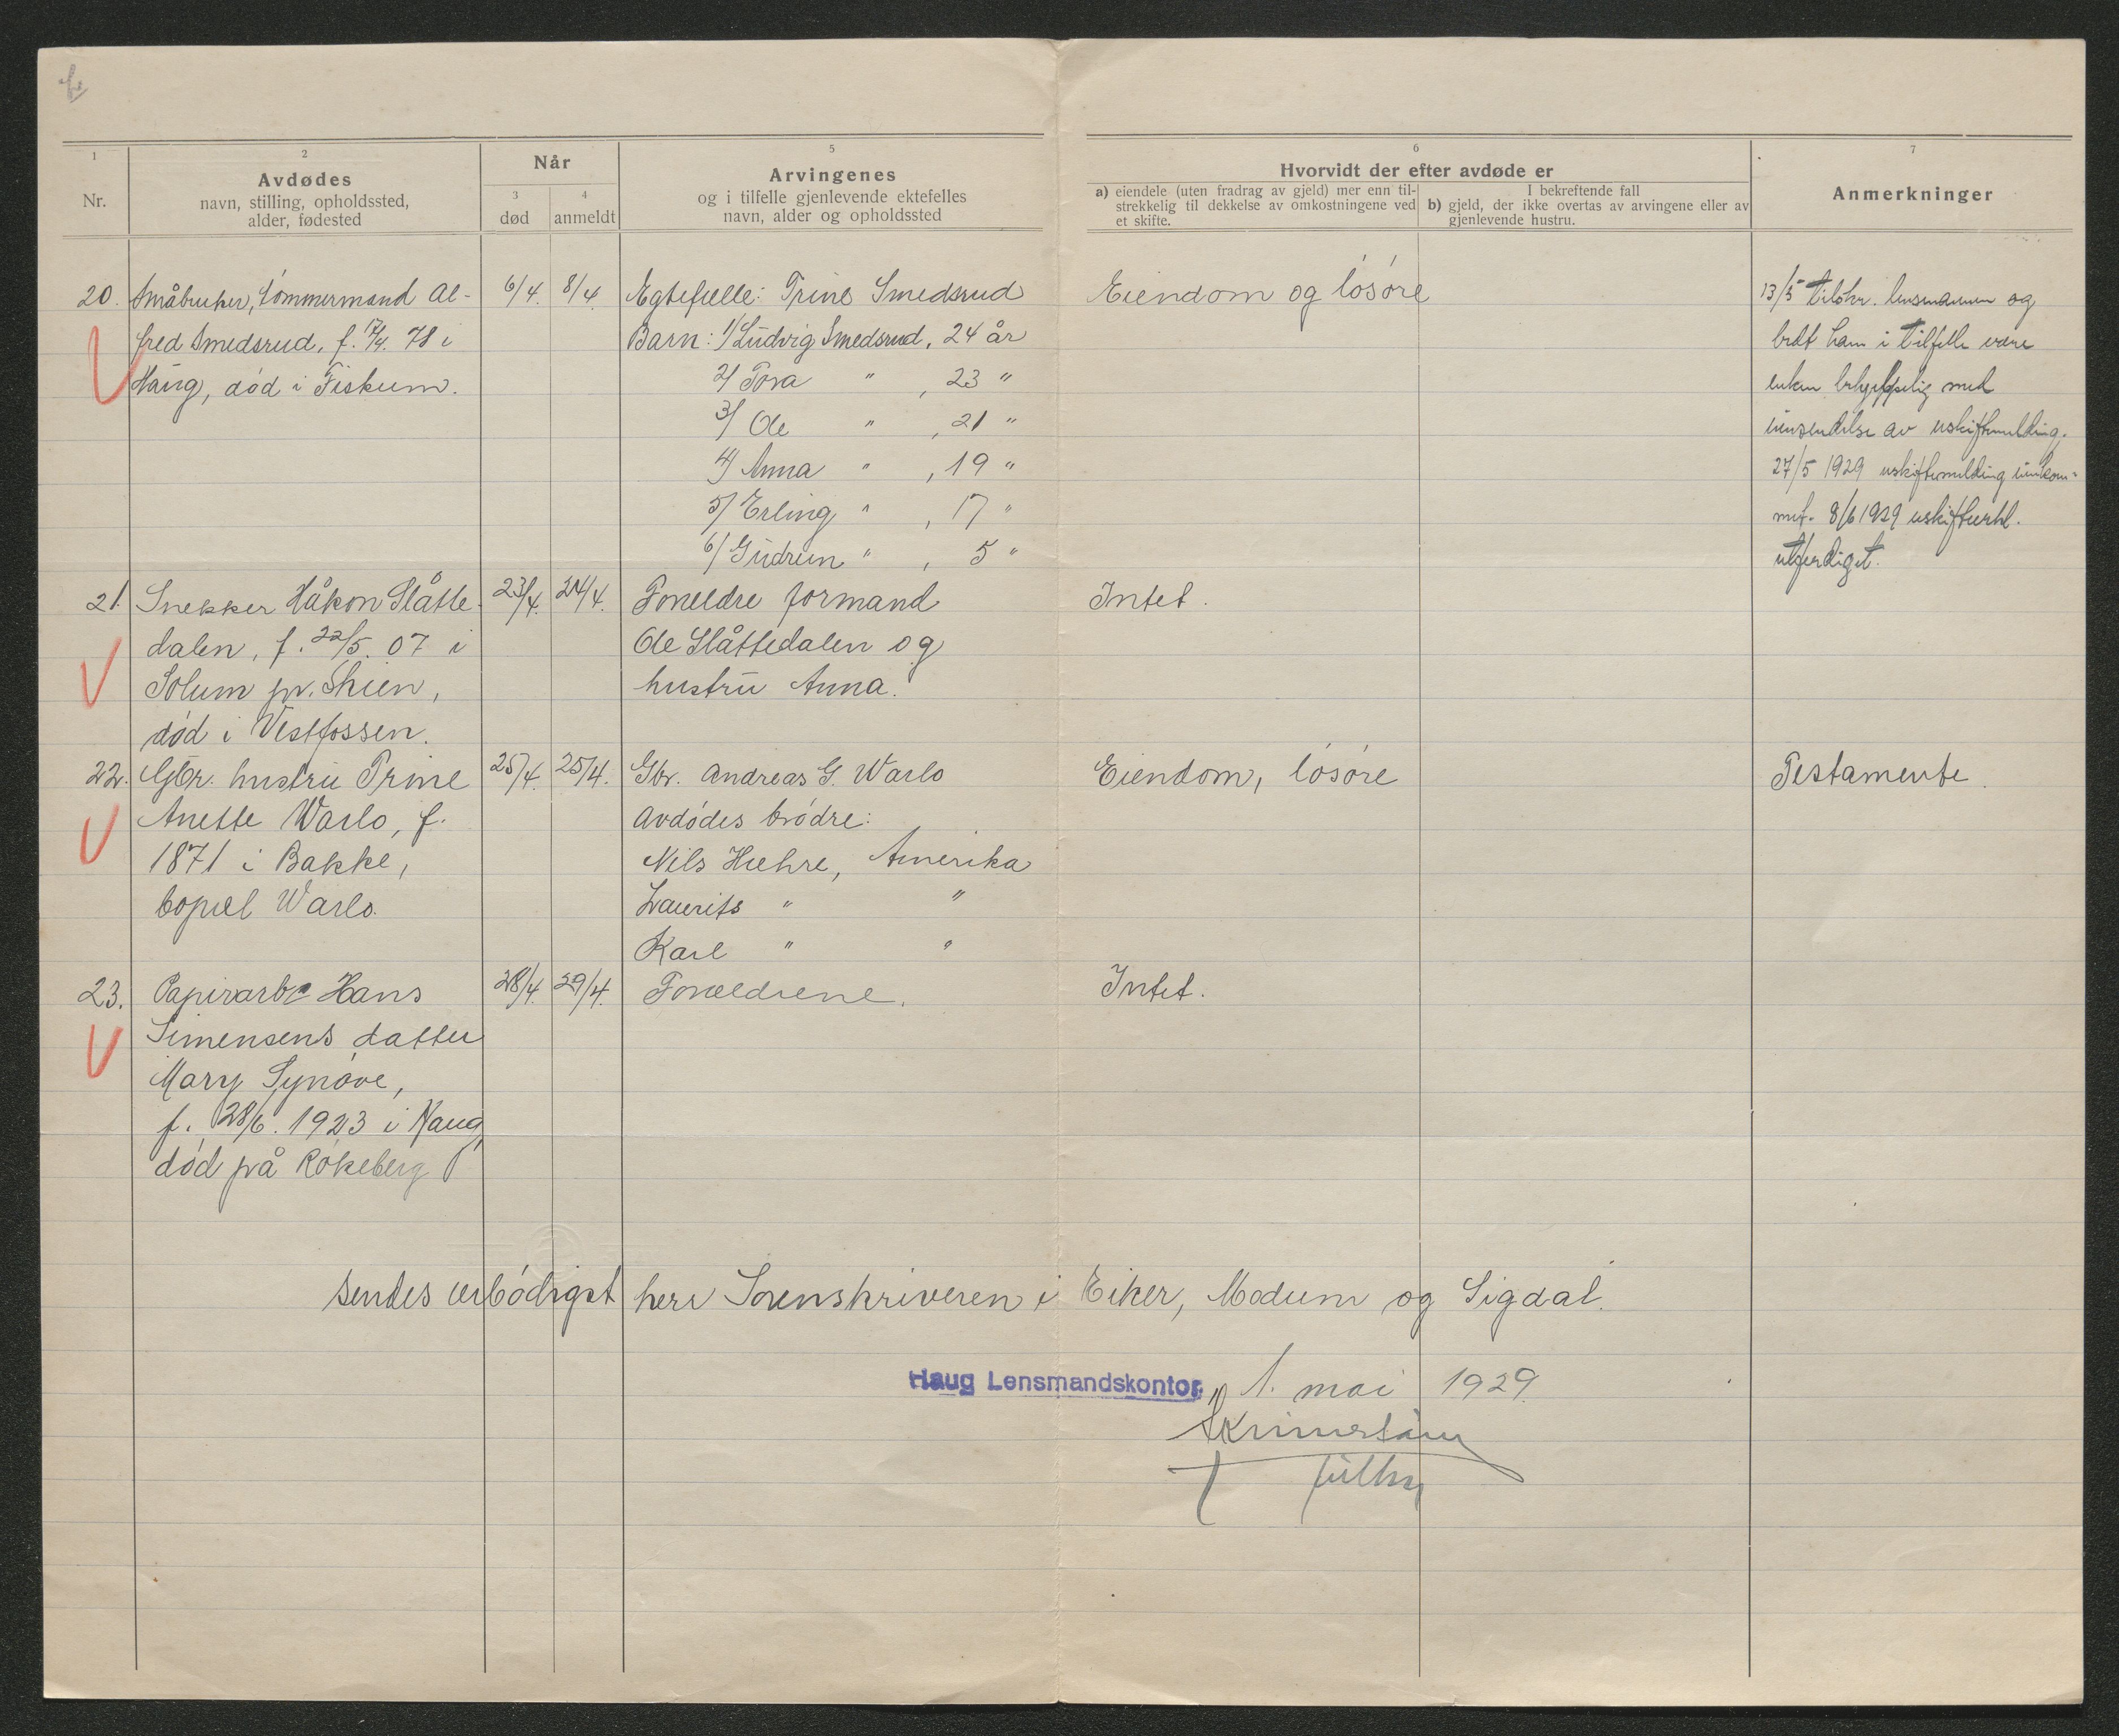 1
2
Avdødes
navn, stilling, opholdssted,
alder, fødested
Nr.
Når
3
død
4
anmeldt
5
Arvingenes
og i tilfelle gjenlevende ektefelles
navn, alder og opholdssted
6
Hvorvidt der efter avdøde er
a) eiendele (uten fradrag av gjeld) mer enn til-
strekkelig til dekkelse av omkostningene ved
et skifte.
I bekreftende fall
b) gjeld, der ikke overtas av arvingene eller av
gjenlevende hustru.
7
Anmerkninger
20. Småbruker, tømmermand Al-
fred Smedsrud, f. 17/4. 78 i
Haug, død i Fiskum.
6/4. 8/4
Egtefælle: Trine Smedsrud
Barn: 1/ Ludvig Smedsrud, 24 år
2/ Tora " , 23 "
3/ Ole " , 21 "
4/ Anna " , 19 "
5/ Erling " , 17 "
6/ Gudrun " , 5 "
Eiendom og løsøre
13/5 tilskr. lensmannen og
bedt ham i tilfelle være
enken behjelpelig med
innsendelse av uskiftemelding.
27/5 1929 uskiftemelding innkom-
met. 8/6 1929 uskifteerkl.
utferdiget.
21. Snekker Håkon Slåtte-
dalen, f. 22/5. 07 i
Solum pr. Skien,
død i Vestfossen.
23/4. 24/4.
Foreldre formand
Ole Slåttedalen og
hustru Anna.
Intet.
22. Gbr. hustru Trine
Anette Warlo, f.
1871 i Bakke,
bopæl Warlo.
25/4. 25/4.
Gbr. Andreas G. Warlo
Avdødes brødre:
Nils Hæhre, Amerika
Laurits " "
Karl " "
Eiendom, løsøre
Testamente.
23. Papirarb. Hans
Simensens datter
Mary Synøve,
f. 28/6. 1923 i Haug,
død på Røkeberg
28/4. 29/4.
Forældrene.
Intet.
Sendes ærbødigst herr Sorenskriveren i Eiker, Modum og Sigdal.
Haug Lensmandskontor, 1. mai 1929